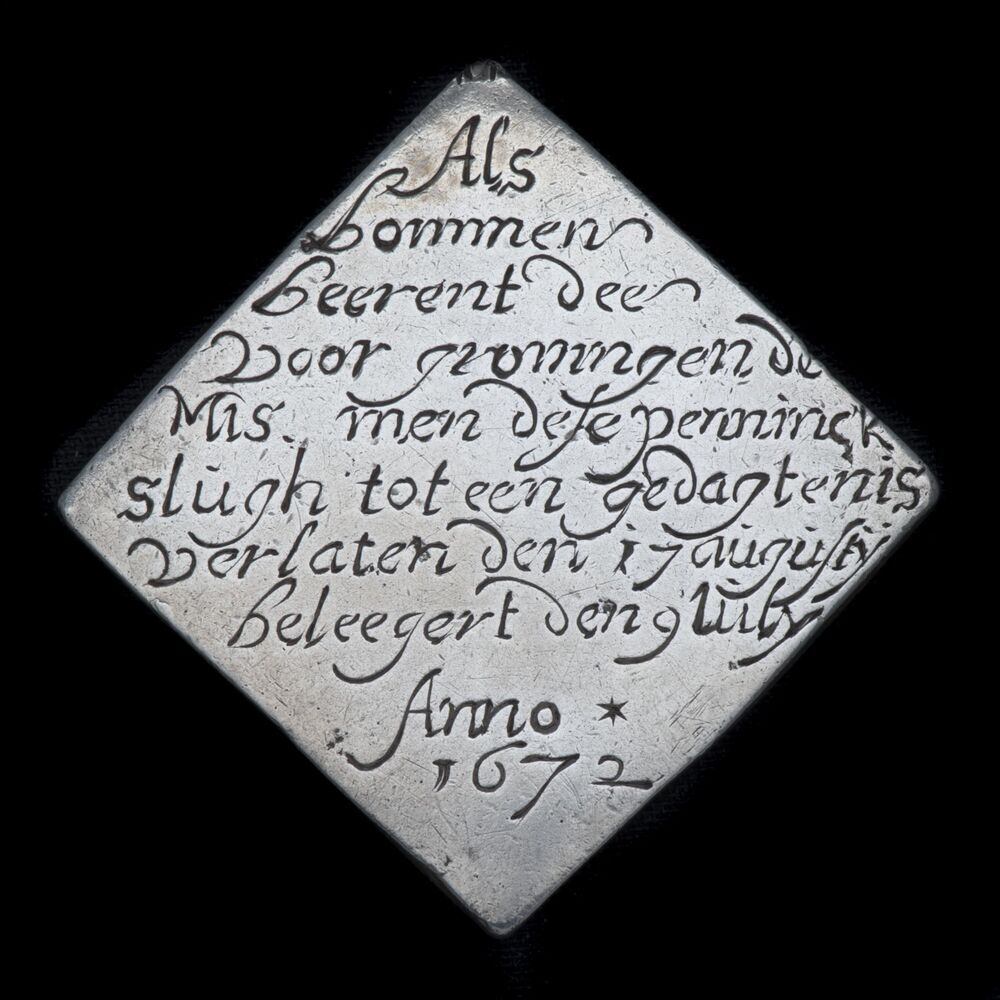 Als
bommen
beerent dee
Voor groningen de
Mis. men dese penninck
slügh tot een gedagtenis
Verlaten den 17 augusty
beleegert den 9 Iüly
Anno *
1672